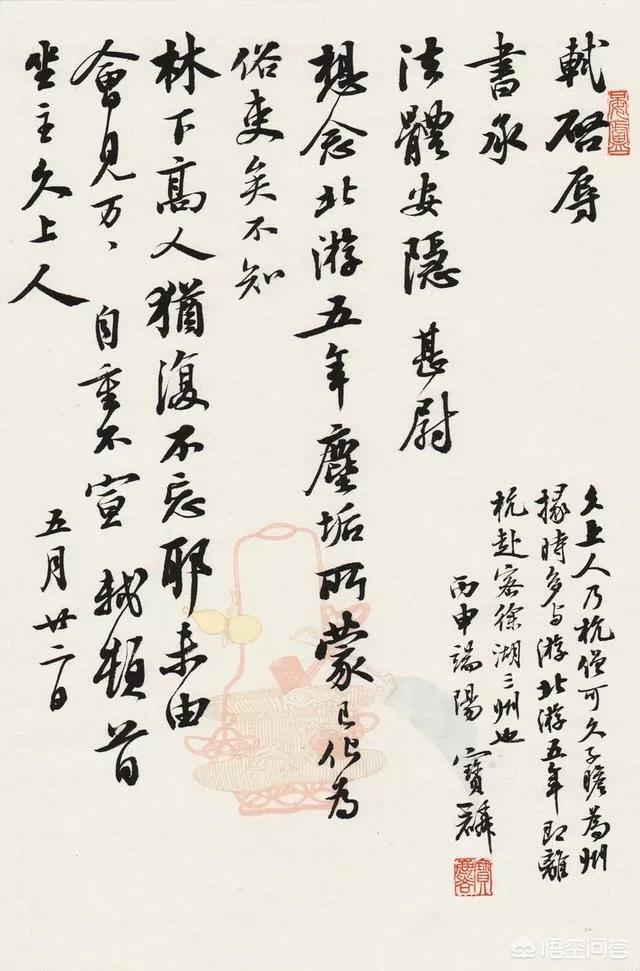 軾啓辱
書承
法體安隱甚尉
想念北游五年塵垢所蒙已化為
俗吏矣不知
林下高人猶復不忘耶未由
會見万、自重不宣 軾頓首
坐主久上人
五月廿二日
久上人乃杭僧可久子瞻為州
掾時多与游北游五年即離
杭赴密徐湖三州也
丙申端陽 寶麟
悟空问答